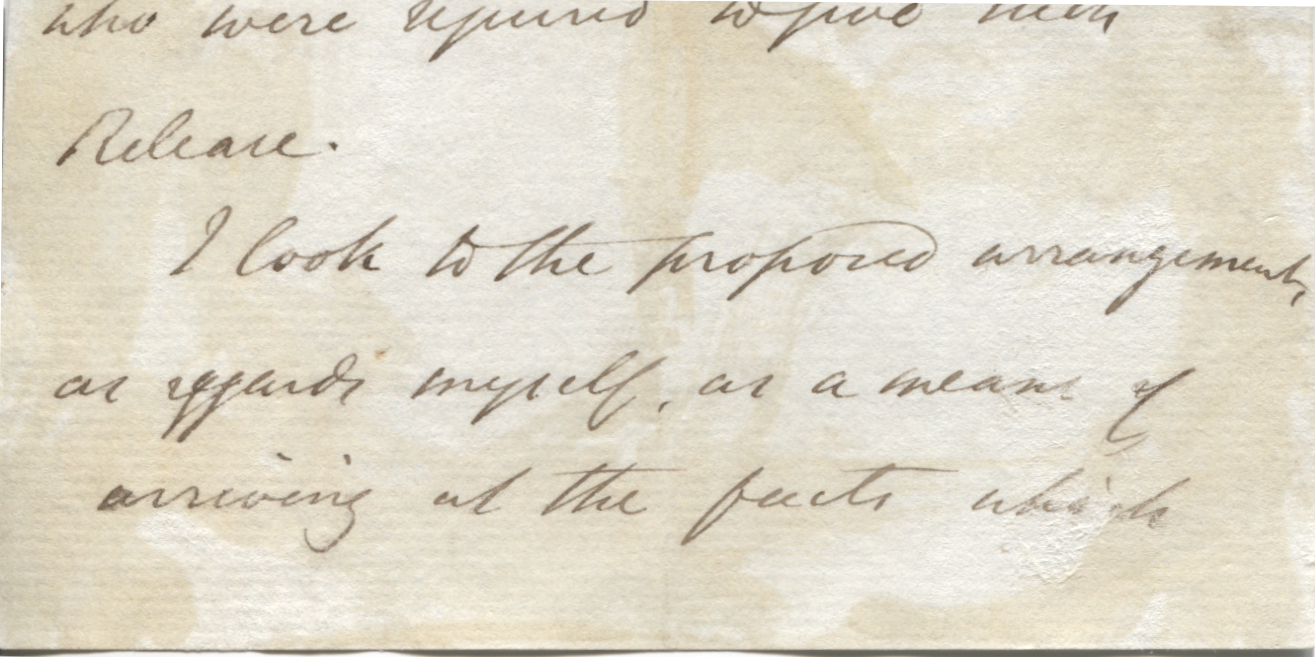 who were required to give such
Release.
I look to the proposed arrangement,
as regards myself, as a means of
arriving at the facts which